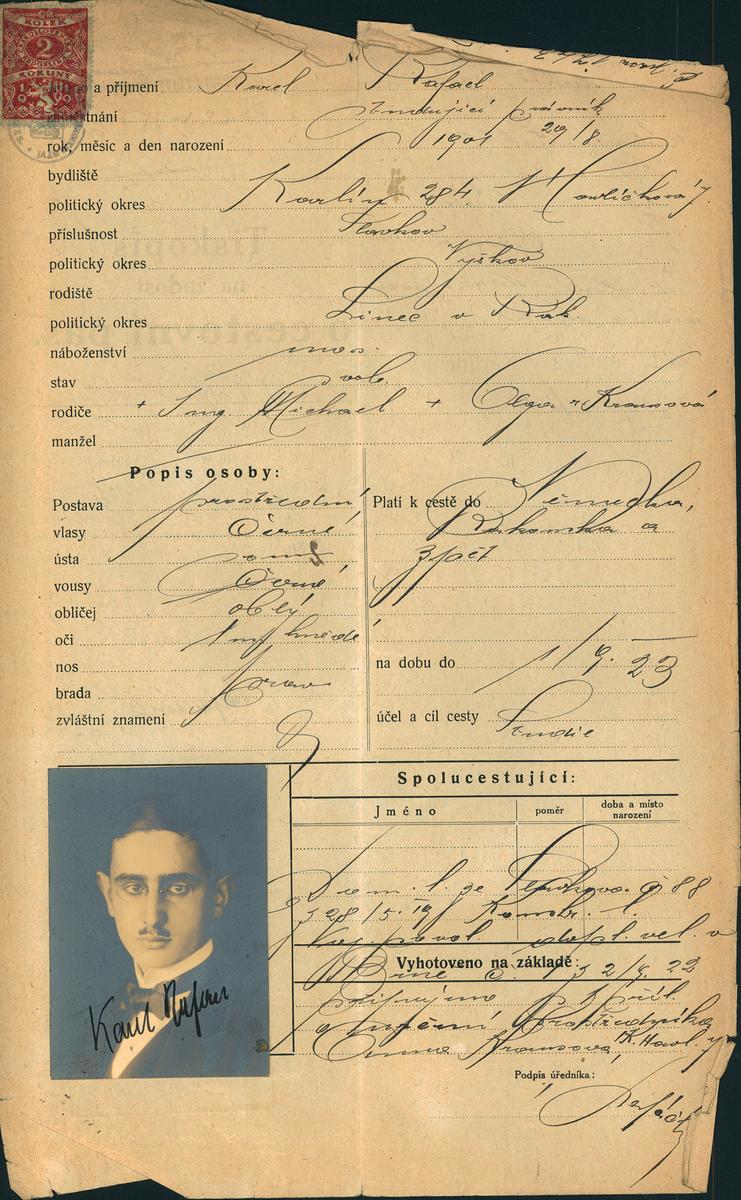 KOLEK
2
KORUNY
Jméno a příjmení Karel Rafael
zaměstnání studující právník
rok, měsíc a den narození 1901 29/8.
bydliště
politický okres Karlín 284 Havlíčkova 7.
příslušnost Slavkov
politický okres Vyškov
rodiště
politický okres Linec v Rak.
náboženství mos.
stav svob.
rodiče + Ing. Michael + Olga r. Krausová
manžel
Popis osoby:
Postava prostřední
vlasy černé
ústa
vousy černé
obličej oblý
oči hnědé
nos
brada
zvláštní znamení
Platí k cestě do Německa,
Rakouska a
zpět
na dobu do 1/9. 23
účel a cíl cesty Studie
Spolucestující:
Jméno poměr doba a místo narození
Dom. l. ze Slavkova č 88
28/5. 19
Voj. povol. dopl. vel. v
Brně č. 2/9. 22
Vyhotoveno na základě:
Anna Krausová K. Havl. 7
Podpis úředníka:
Karel Rafael